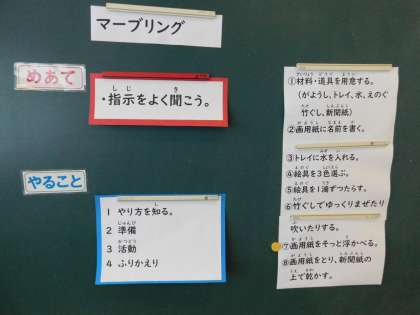 マーブリング
めあて
・指示をよく聞こう。
やること
1 やり方を知る。
2 準備
3 活動
4 ふりかえり
①材料・道具を用意する。
(がようし、トレイ、水、えのぐ
竹ぐし、新聞紙)
②画用紙に名前を書く。
③トレイに水を入れる。
④絵具を3色選ぶ。
⑤絵具を1滴ずつたらす。
⑥竹ぐしでゆっくりまぜたり
吹いたりする。
⑦画用紙をそっと浮かべる。
⑧画用紙をとり、新聞紙の
上で乾かす。